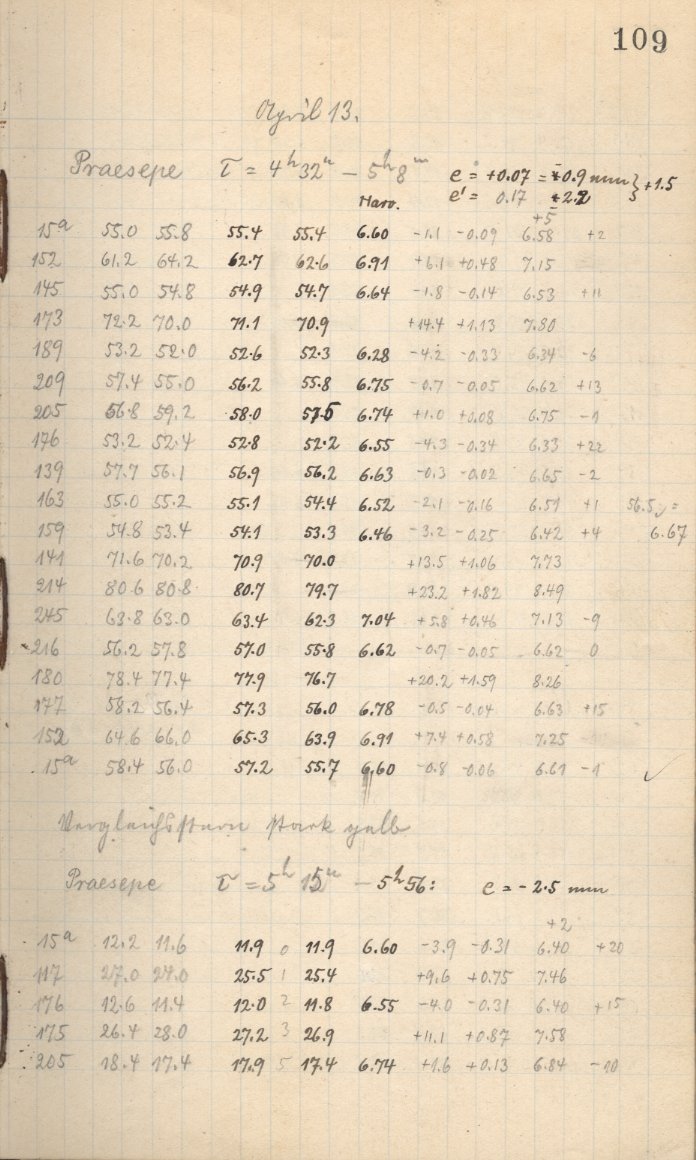 109
April 13.
Praesepe τ = 4h 32m – 5h 8m e = +0.07 = +0.9 mm } +1.5
Harv. e' = 0.17 +2.2
+5
15a 55.0 55.8 55.4 55.4 6.60 -1.1 -0.09 6.58 +2
152 61.2 64.2 62.7 62.6 6.91 +6.1 +0.48 7.15
145 55.0 54.8 54.9 54.7 6.64 -1.8 -0.14 6.53 +11
173 72.2 70.0 71.1 70.9 +14.4 +1.13 7.80
189 53.2 52.0 52.6 52.3 6.28 -4.2 -0.33 6.34 -6
209 57.4 55.0 56.2 55.8 6.75 -0.7 -0.05 6.62 +13
205 56.8 59.2 58.0 57.5 6.74 +1.0 +0.08 6.75 -1
176 53.2 52.4 52.8 52.2 6.55 -4.3 -0.34 6.33 +22
139 57.7 56.1 56.9 56.2 6.63 -0.3 -0.02 6.65 -2
163 55.0 55.2 55.1 54.4 6.52 -2.1 -0.16 6.51 +1 56.5 =
159 54.8 53.4 54.1 53.3 6.46 -3.2 -0.25 6.42 +4 6.67
141 71.6 70.2 70.9 70.0 +13.5 +1.06 7.73
214 80.6 80.8 80.7 79.7 +23.2 +1.82 8.49
245 63.8 63.0 63.4 62.3 7.04 +5.8 +0.46 7.13 -9
216 56.2 57.8 57.0 55.8 6.62 -0.7 -0.05 6.62 0
180 78.4 77.4 77.9 76.7 +20.2 +1.59 8.26
177 58.2 56.4 57.3 56.0 6.78 -0.5 -0.04 6.63 +15
152 64.6 66.0 65.3 63.9 6.91 +7.4 +0.58 7.25
15a 58.4 56.0 57.2 55.7 6.60 -0.8 -0.06 6.61 -1 ✓
Vergleichsstern stark gelb
Praesepe τ = 5h 15m – 5h 56: e = -2.5 mm
+2
15a 12.2 11.6 11.9 0 11.9 6.60 -3.9 -0.31 6.40 +20
117 27.0 24.0 25.5 1 25.4 +9.6 +0.75 7.46
176 12.6 11.4 12.0 2 11.8 6.55 -4.0 -0.31 6.40 +15
175 26.4 28.0 27.2 3 26.9 +11.1 +0.87 7.58
205 18.4 17.4 17.9 5 17.4 6.74 +1.6 +0.13 6.84 -10